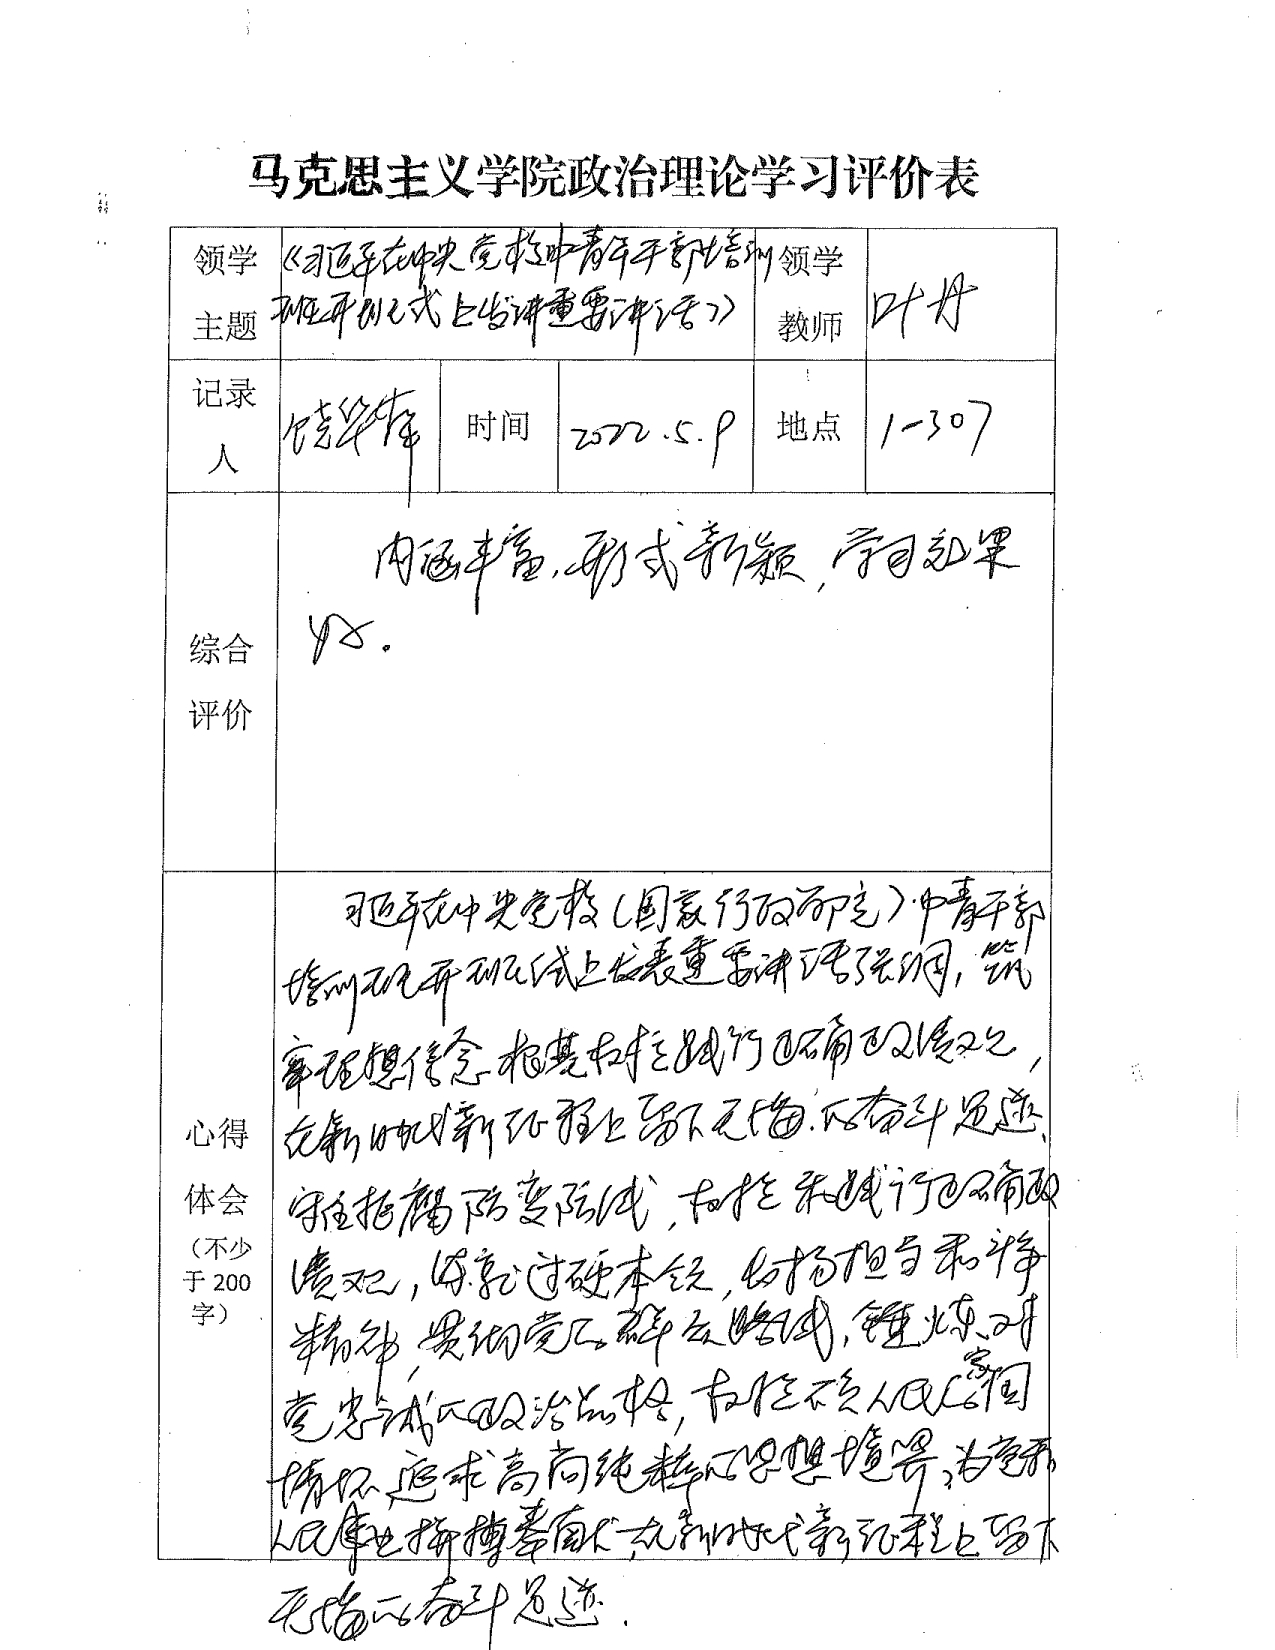 马克思主义学院政治理论学习评价表
领学主题
《习近平在中央党校中青年干部培训
班开班式上发讲重要讲话》
领学教师
叶丹
记录人
饶华
时间
2022.5.9
地点
1-307
综合评价
内涵丰富，形式新颖，学习效果
好.
心得体会（不少于200字）
习近平在中央党校（国家行政学院）中青干部
培训班开班式上发表重要讲话强调，筑
牢理想信念根基树立践行正确政绩观，
在新时代新征程上留下无悔的奋斗足迹.
守住拒腐防变防线，树立和践行正确政
绩观，练就过硬本领，发扬担当和斗争
精神，贯彻党的群众路线，锤炼对
党忠诚的政治品格，树立不负人民的家国
情怀，追求高尚纯粹的思想境界，为党和
人民事业拼搏奉献，在新时代新征程上留下
无悔的奋斗足迹.